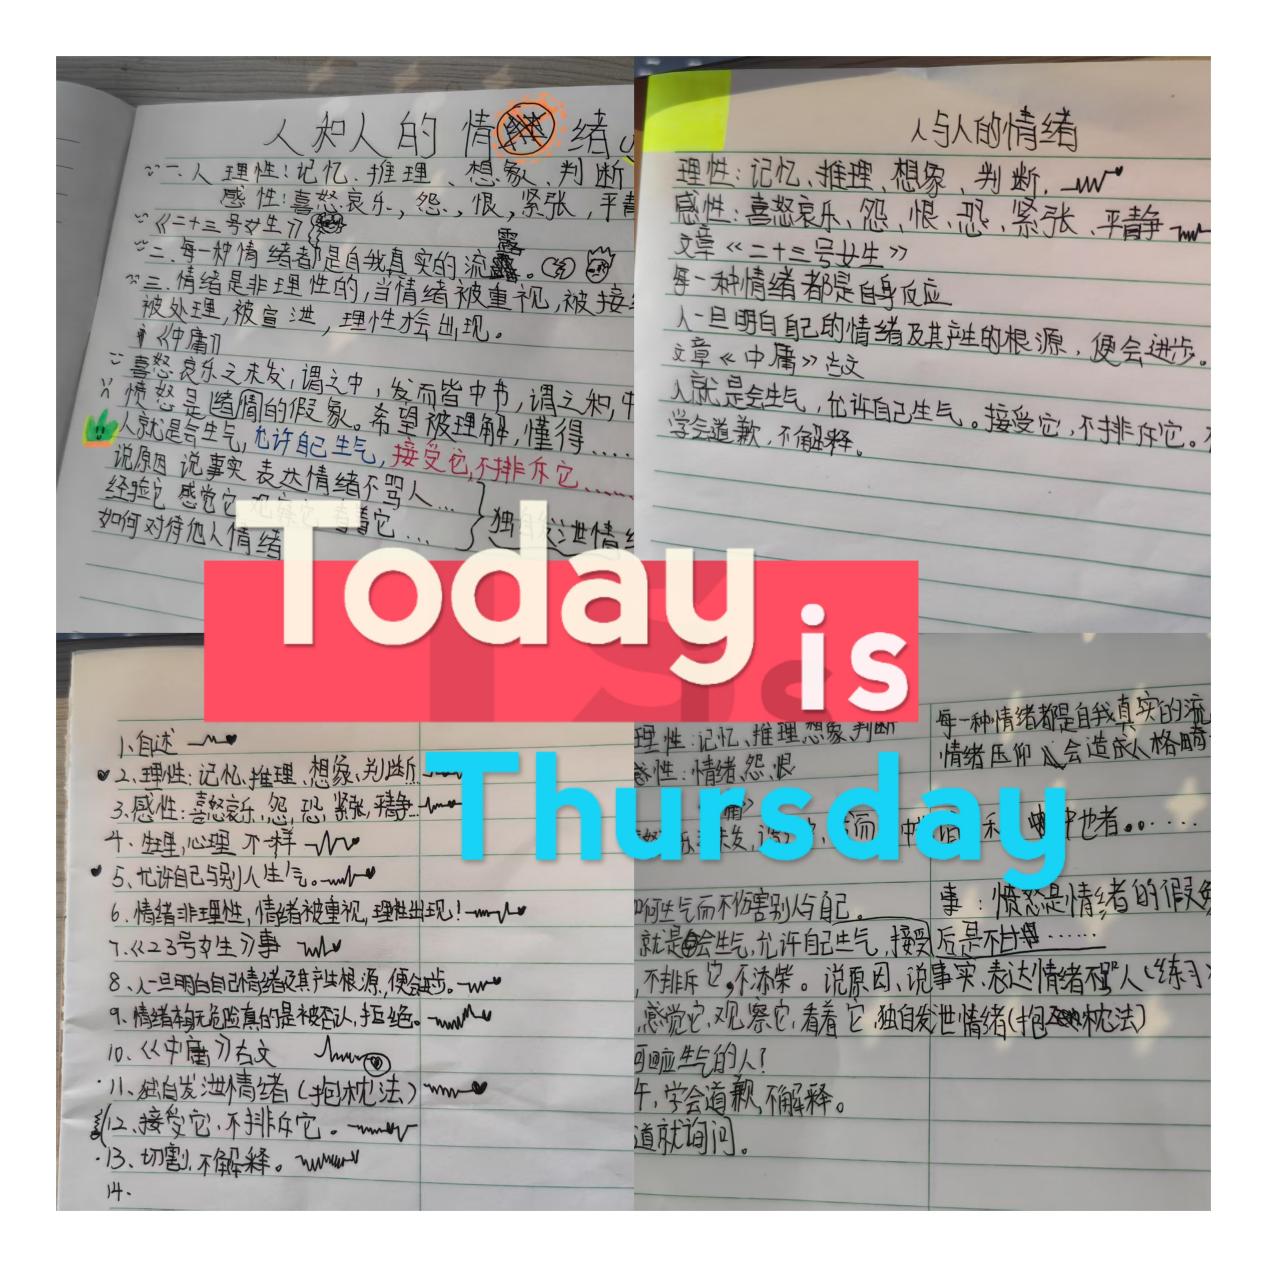 人和人的情绪
一.人 理性:记忆、推理、想象、判断
感性:喜怒哀乐,怨,恨,紧张,平静
《二十三号女生》
二、每一种情绪都是自我真实的流露。
三.情绪是非理性的,当情绪被重视,被接
被处理,被宣泄,理性才会出现。
《中庸》
喜怒哀乐之未发,谓之中,发而皆中书,谓之和,中
愤怒是 的假象。希望被理解,懂得....
人就是会生气,允许自己生气,接受它,不排斥它......
说原因 说事实 表达情绪不骂人...
经验它 感觉它 观察它 看着它...
独自发泄情绪
如何对待他人情绪
人与人的情绪
理性:记忆、推理、想象、判断.
感性:喜怒哀乐、怨、恨、恐、紧张、平静
文章《二十三号女生》
每一种情绪都是自身反应
人一旦明白自己的情绪及其产生的根源,便会进步。
文章《中庸》古文
人就是会生气,允许自己生气。接受它,不排斥它。
学会道歉,不解释。
Today is
Thursday
1、自述
2、理性:记忆、推理、想象、判断
3、感性:喜怒哀乐,怨,恐,紧张,平静...
4、生理,心理 不一样
5、允许自己与别人生气。
6、情绪非理性,情绪被重视,理性出现!
7、《23号女生》事
8、人一旦明白自己情绪及其产生根源,便会进步。
9、情绪本身无危险真的是被否认,拒绝。
10、《中庸》古文
11、独自发泄情绪(抱枕法)
12、接受它、不排斥它。
13、切割,不解释。
14.
理性:记忆、推理、想象、判断
感性:情绪、怨、恨
未发,
如何生气而不伤害别人与自己。
就是会生气,允许自己生气,接受
不排斥它,不添柴。说原因、说事实、表达情绪不骂人(练习
感觉它,观察它,看着它,独自发泄情绪(抱枕法)
可回应生气的人?
学会道歉,不解释。
道就询问。
每一种情绪都是自我真实的流
情绪压抑 会造成人格
和 中也者......
事:愤怒是情绪的假象
后是不甘......